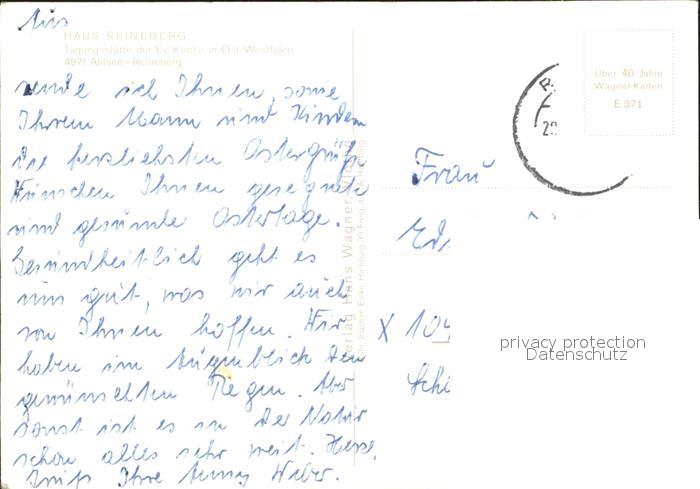 Aus
HAUS REINEBERG
Tagungsstätte der Ev. Kirche in Ost-Westfalen
4971 Ahlsen-Reineberg
sende ich Ihnen, sowie
Ihrem Mann und Kindern
die herzlichsten Ostergrüße
Wünschen Ihnen gesegnete
und gesunde Ostertage.
Gesundheitlich geht es
uns gut, was wir auch
von Ihnen hoffen. Wir
haben im Augenblick den
gewünschten Regen. Aber
sonst ist es in der Natur
schon alles sehr weit. Herzl.
Gruß Ihre Anny Weber.
Verlag Hans Wagner,
Über 40 Jahre
Wagner-Karten
E 371
Frau
X 104
privacy protection
Datenschutz